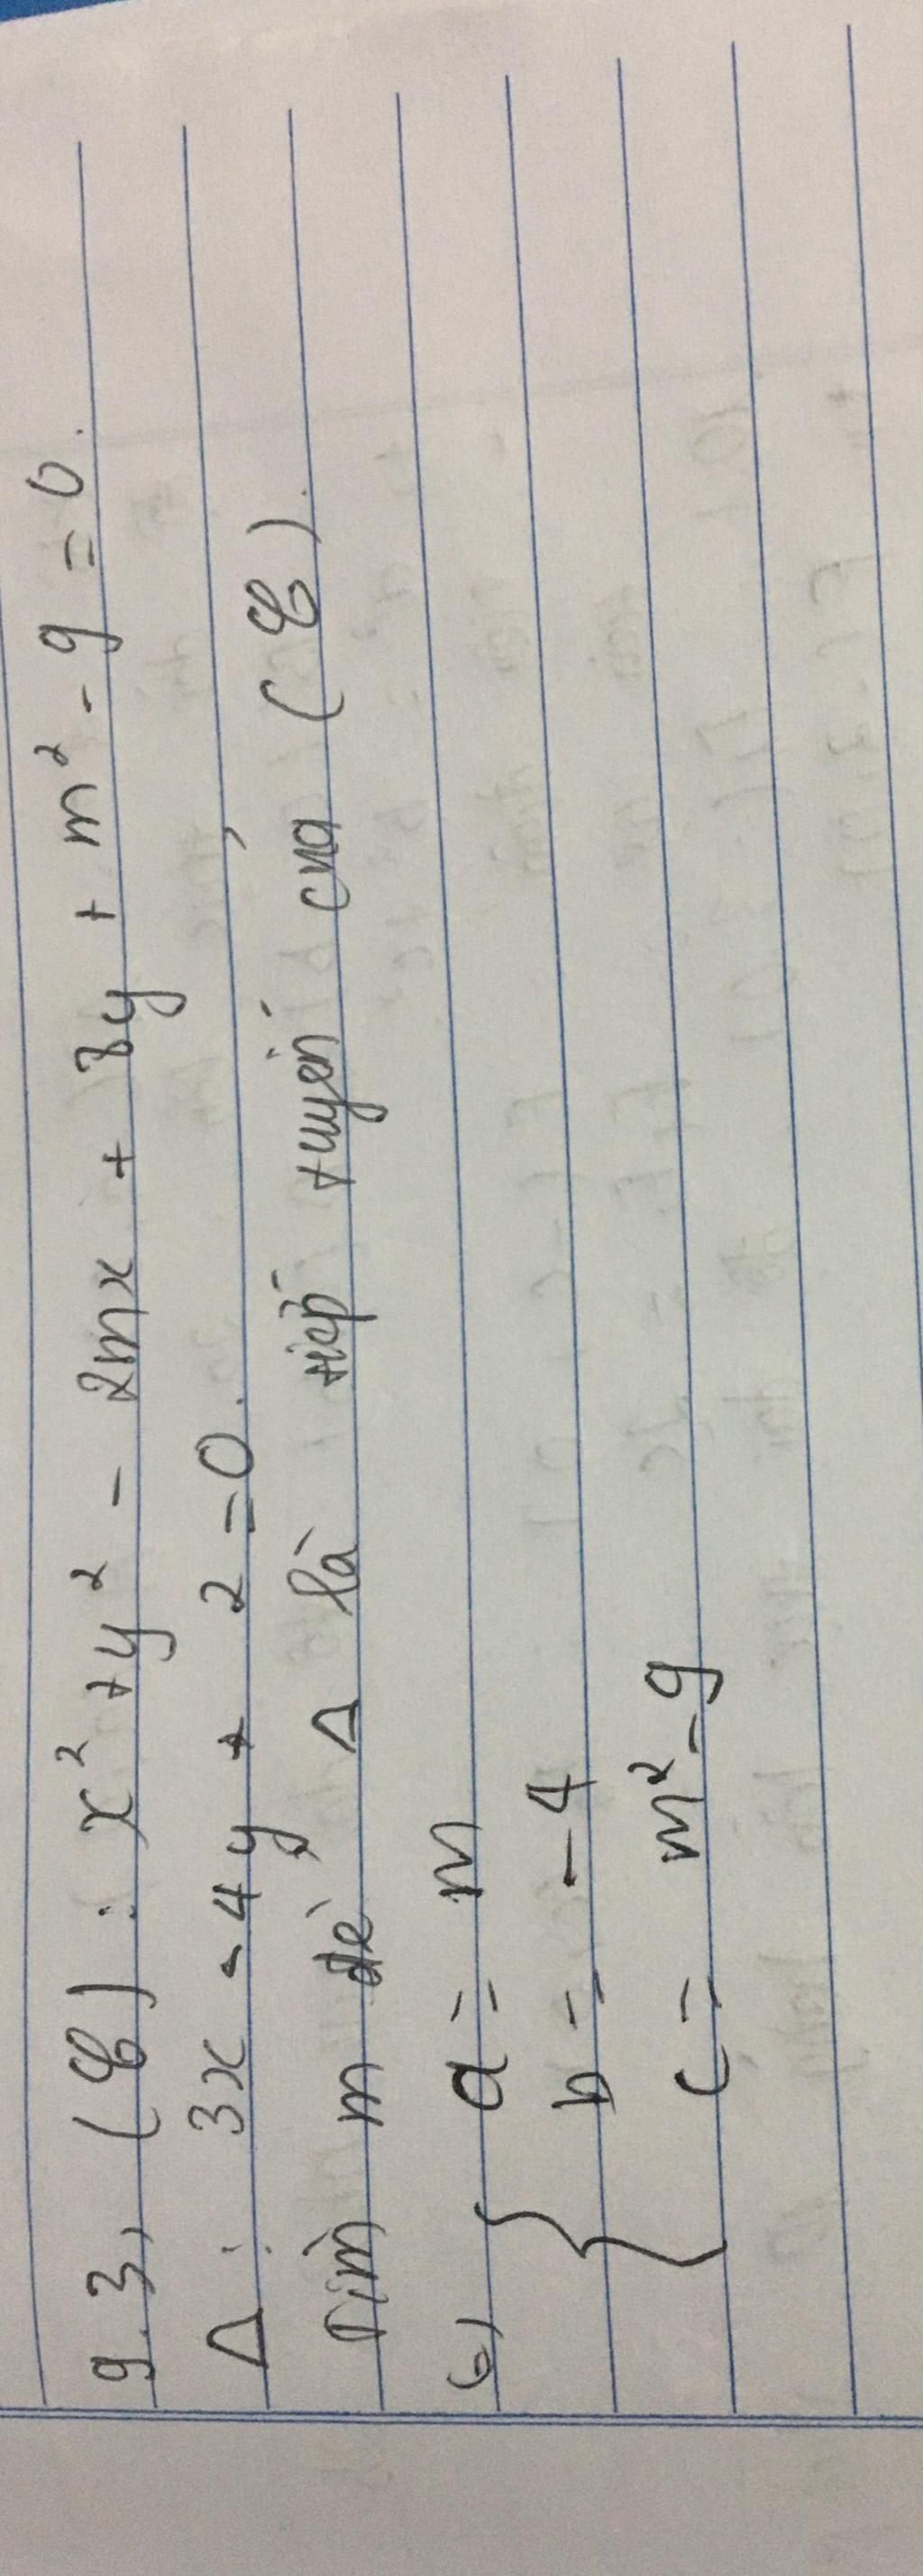 9.3, (C): x² + y² - 2mx + 8y + m² - 9 = 0.
Δ: 3x - 4y + 2 = 0.
Tìm m để Δ là tiếp tuyến của (C).
G) { a = m
b = -4
c = m² - 9